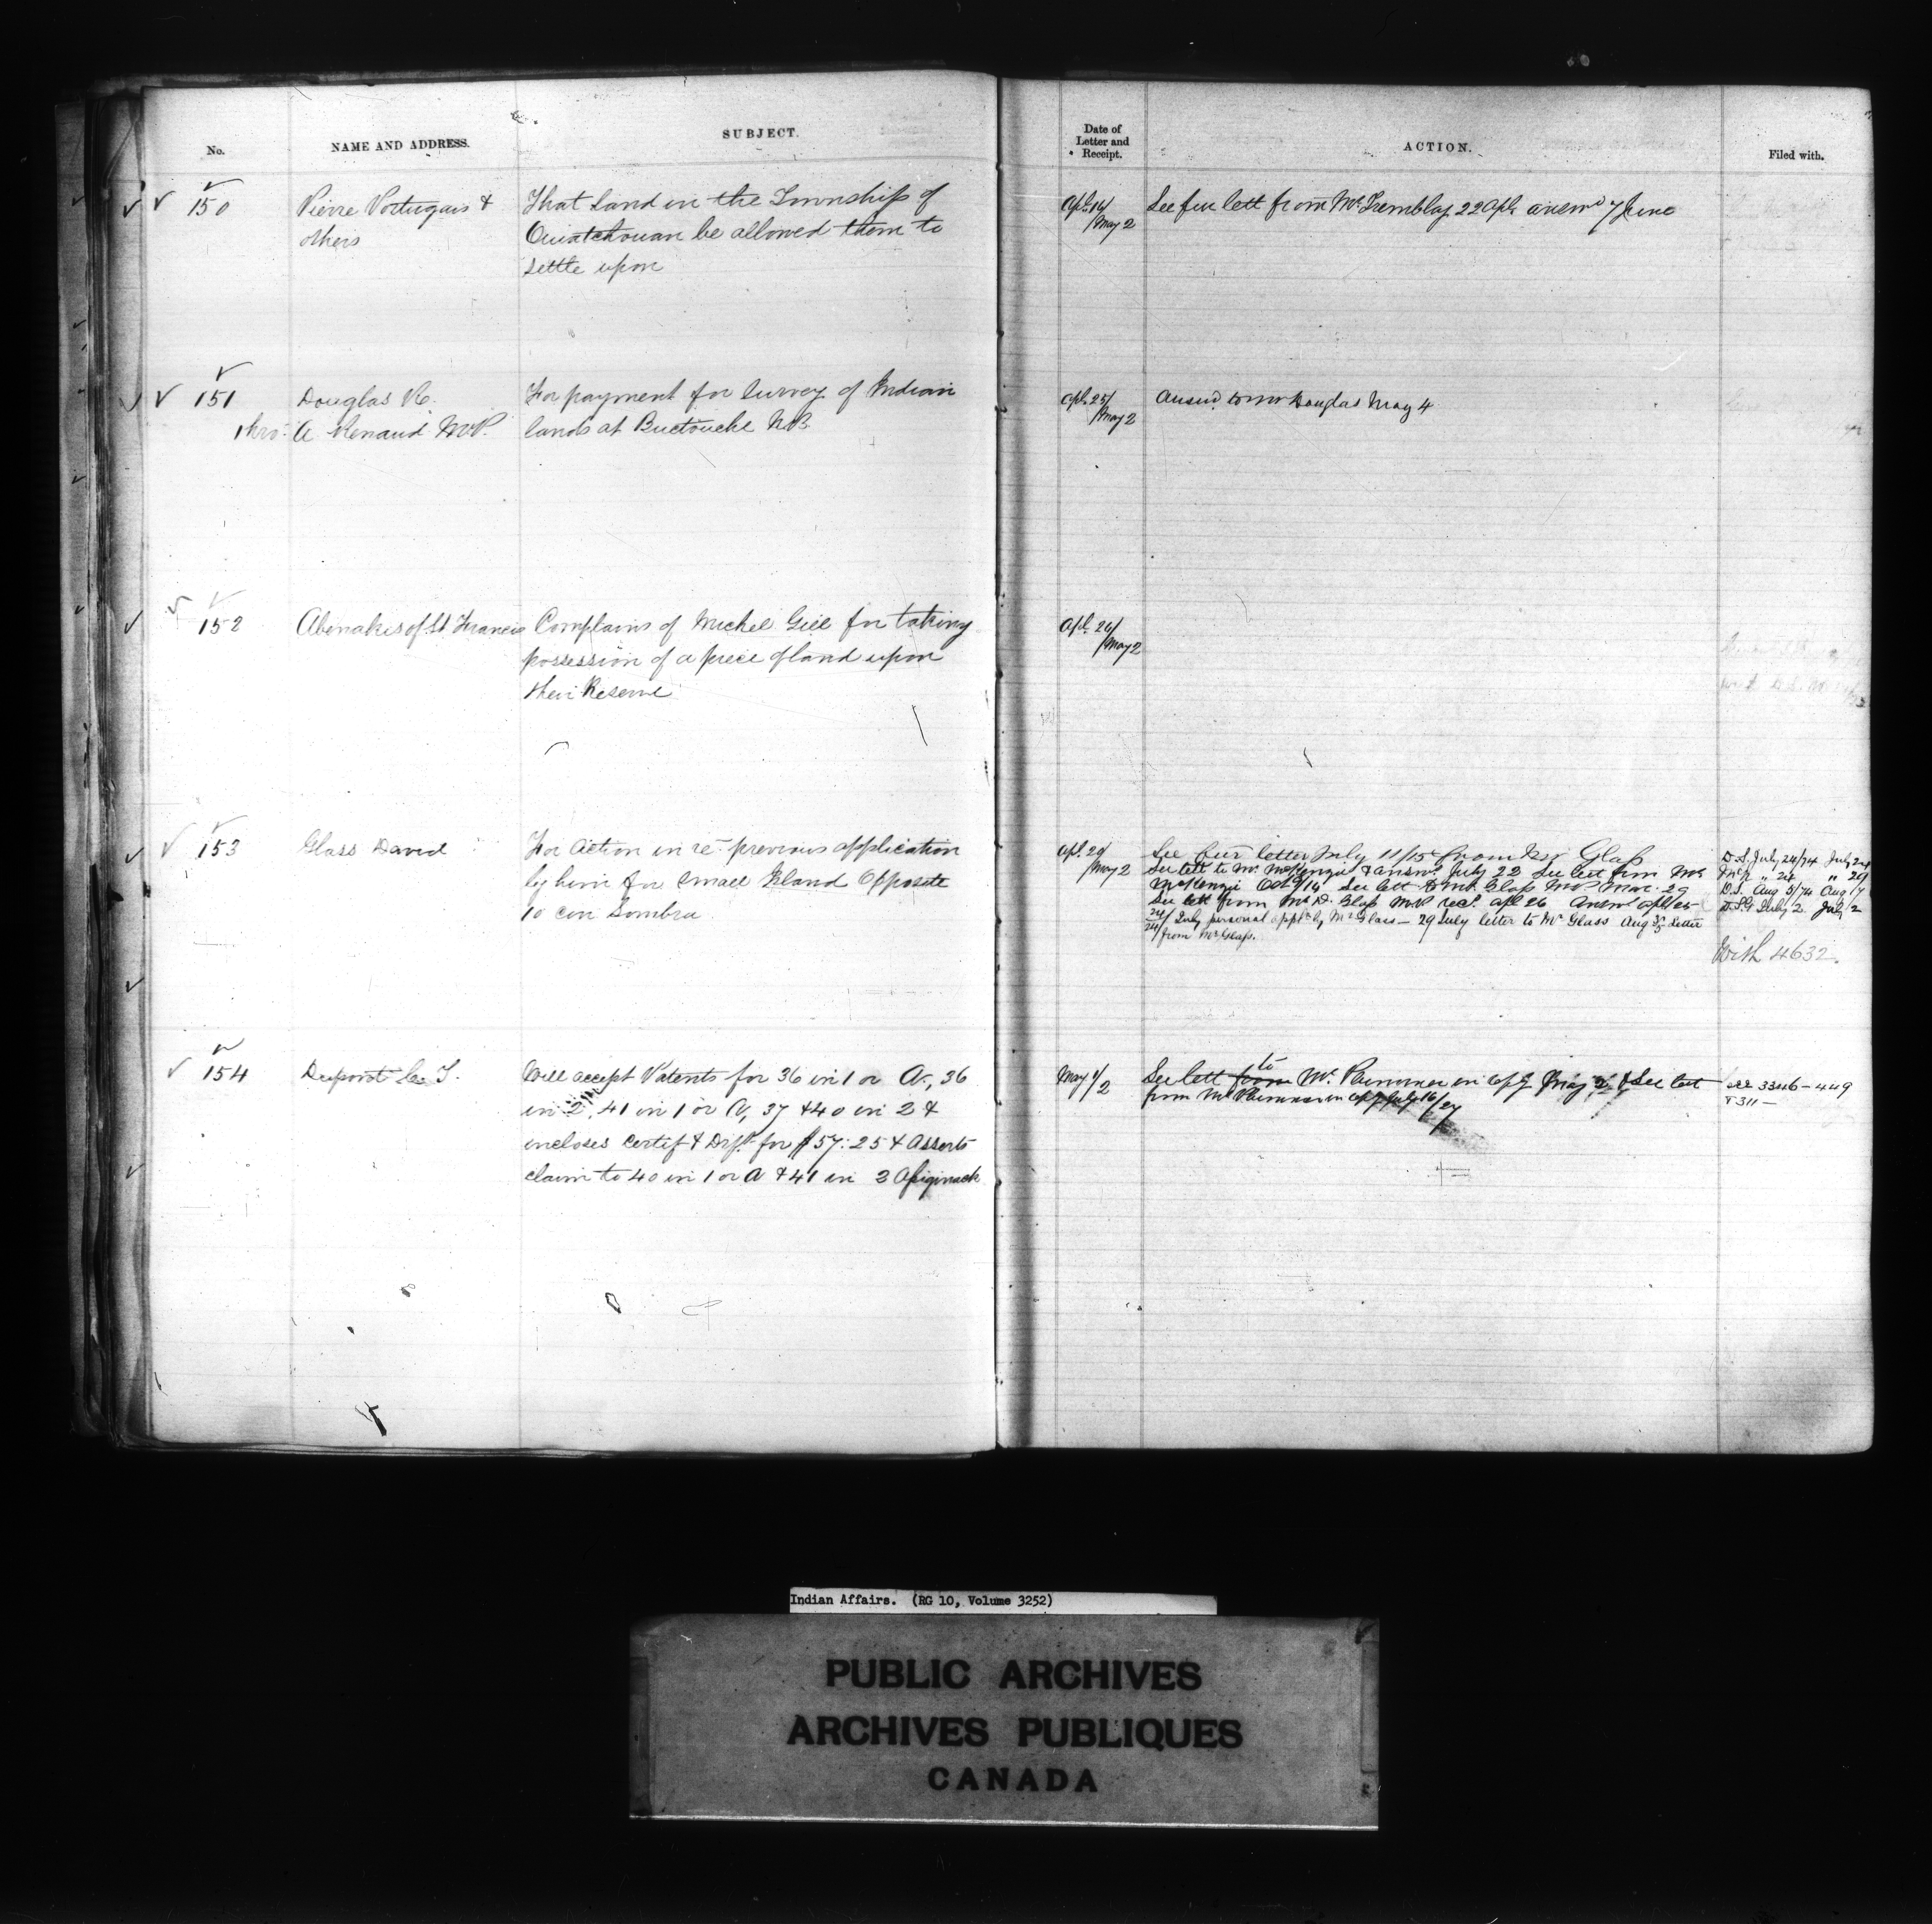 No.
NAME AND ADDRESS.
SUBJECT.
Date of
Letter and
Receipt.
ACTION.
Filed with.
150
Pierre Portugais &
others
That land in the Township of
Ouiatchouan be allowed them to
settle upon
Apl. 14/
/May 2
See fur lett from Mr Tremblay 22 Apl. answd 7 June
151
Douglas R.
thro: A Renaud M.P.
For payment for survey of Indian
lands at Buctouche N.B.
Apl. 25/
/May 2
Answd to Mr Douglas May 4
152
Abenakis of St Francis
Complains of Michel Gill for taking
possession of a piece of land upon
their Reserve
Apl. 26/
/May 2
153
Glass David
For action in re previous application
by him for small Island opposite
10 con Sombra
Apl. 29/
/May 2
See fur letter July 11/15 from Glass
See lett to Mr McKenzie & answr July 22 See lett from Mr
McKenzie Oct 9/14 See lett to Mr Glass M.P. Mar. 29
See lett from Mr D. Glass M.P. recd. Apl 26 Answd Apl
24/ July personal applc by Mr Glass — 29 July letter to Mr Glass Aug 3/5 Letter
from Mr Glass.
D.S. July 24/74 July 24
McK " 24 " 29
D.S. Aug 5/74 Aug 17
July 2 July 2
With 4632.
154
Dupont C. T.
Will accept Patents for 36 in 1 or A, 36
in 2, 41 in 1 or A, 37 & 40 in 2 &
incloses certif & Dft. for $57.25 & Asserts
claim to 40 in 1 or A & 41 in 2 Assiginack
May 1/
/2
See lett from to Mr. Plummer in May 2, & See lett
from Mr Plummer in July 16/27
see 3346-449
& 311 —
Indian Affairs. (RG 10, Volume 3252)
PUBLIC ARCHIVES
ARCHIVES PUBLIQUES
CANADA